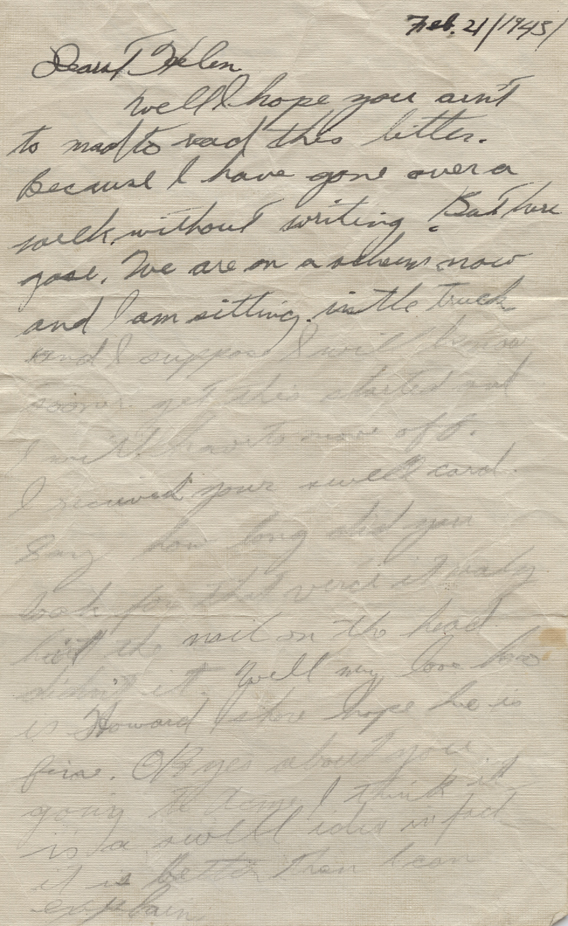 Feb. 21/1945/
Dearest Helen
Well I hope you ain't
to mad to read this letter.
Because I have gone over a
week without writing. But here
gose. We are on a scheme now
and I am sitting in the truck
and I suppose I will
sooner get this started and
I will have to move off.
I received your swell card.
Say how long did you
look for that verce it realy
hit the nail on the head
didn't it. Well my love how
is Howard I shore hope he is
fine. OK yes about you
going to I think it
is a swell idea in fact
it is better then I can
explain